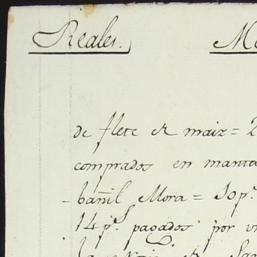 Reales. Me
de flete & maiz = 2
comprados en manta
bañil Mora = 10 p.s
14 p.s pagados por un